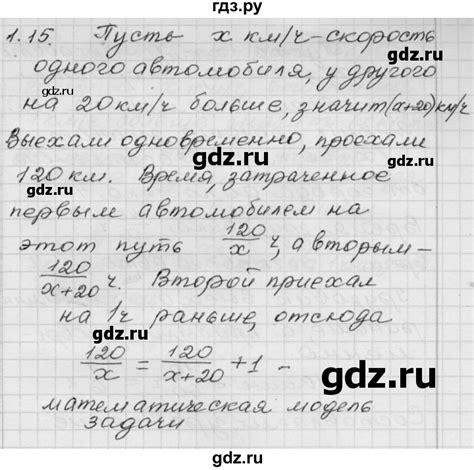 гдз.ру
1.15. Пусть x км/ч-скорость
одного автомобиля, у другого
на 20 км/ч больше, значит (x+20) км/ч
Выехали одновременно, проехали
gdz.ru
120 км. Время, затраченное
первым автомобилем на
этот путь 120/x ч, а вторым –
gdz.ru
120/x+20 ч. Второй приехал
на 1ч раньше, отсюда
gdz.ru
120/x = 120/x+20 +1 –
математическая модель
задачи
gdz.ru
gdz.ru